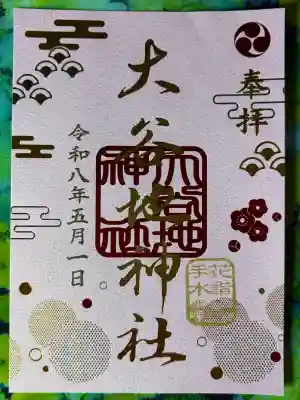 奉拝
大谷地神社
令和八年五月一日
大谷地神社
花詣
手水